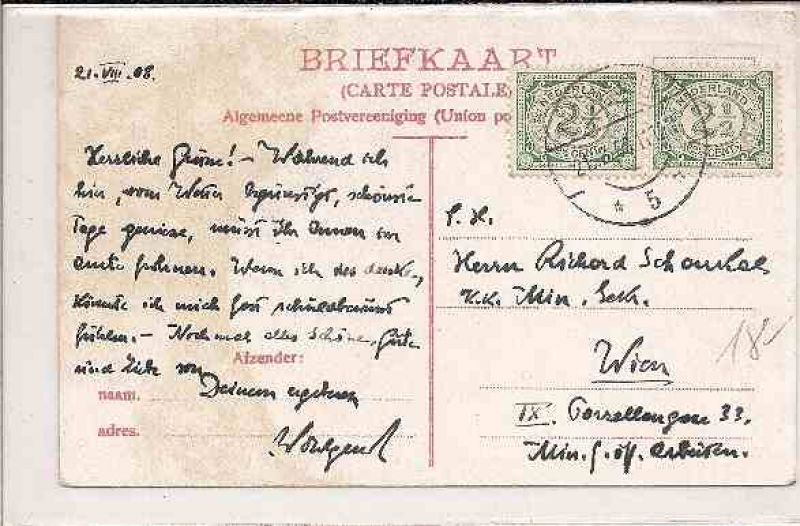 21.VIII.08.
BRIEFKAART
(CARTE POSTALE)
Algemeene Postvereeniging (Union po
NEDERLAND
2½
CENT
NEDERLAND
2½
CENT
5
Herrliche Grüsse! – Während ich
hier, vom Wetter begünstigt, schönste
Tage geniesse, müsst Ihr Armen im
Amte frohnen. Wenn ich das denke,
könnte ich mich fast schuldbewusst
fühlen. – Nochmals alles Schöne, Gute
und Liebe von
Afzender:
naam.
Deinem ergebenen
adres.
S. H.
Herrn Richard Schaukal
K.K. Min. Sekr.
Wien
IX. Porzellangasse 33.
Min. f. öff. Arbeiten.
18-